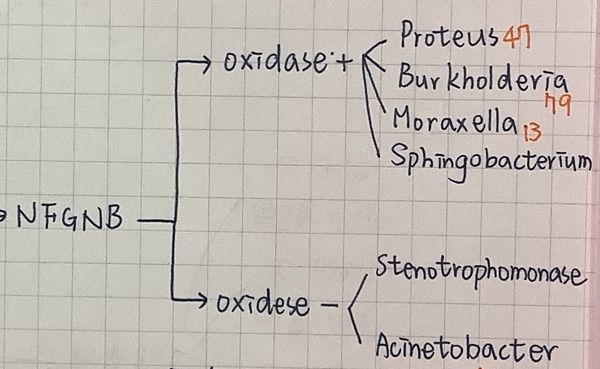 oxidase +
Proteus 47
Burkholderia
79
Moraxella 13
Sphingobacterium
NFGNB
Stenotrophomonase
oxidese -
Acinetobacter